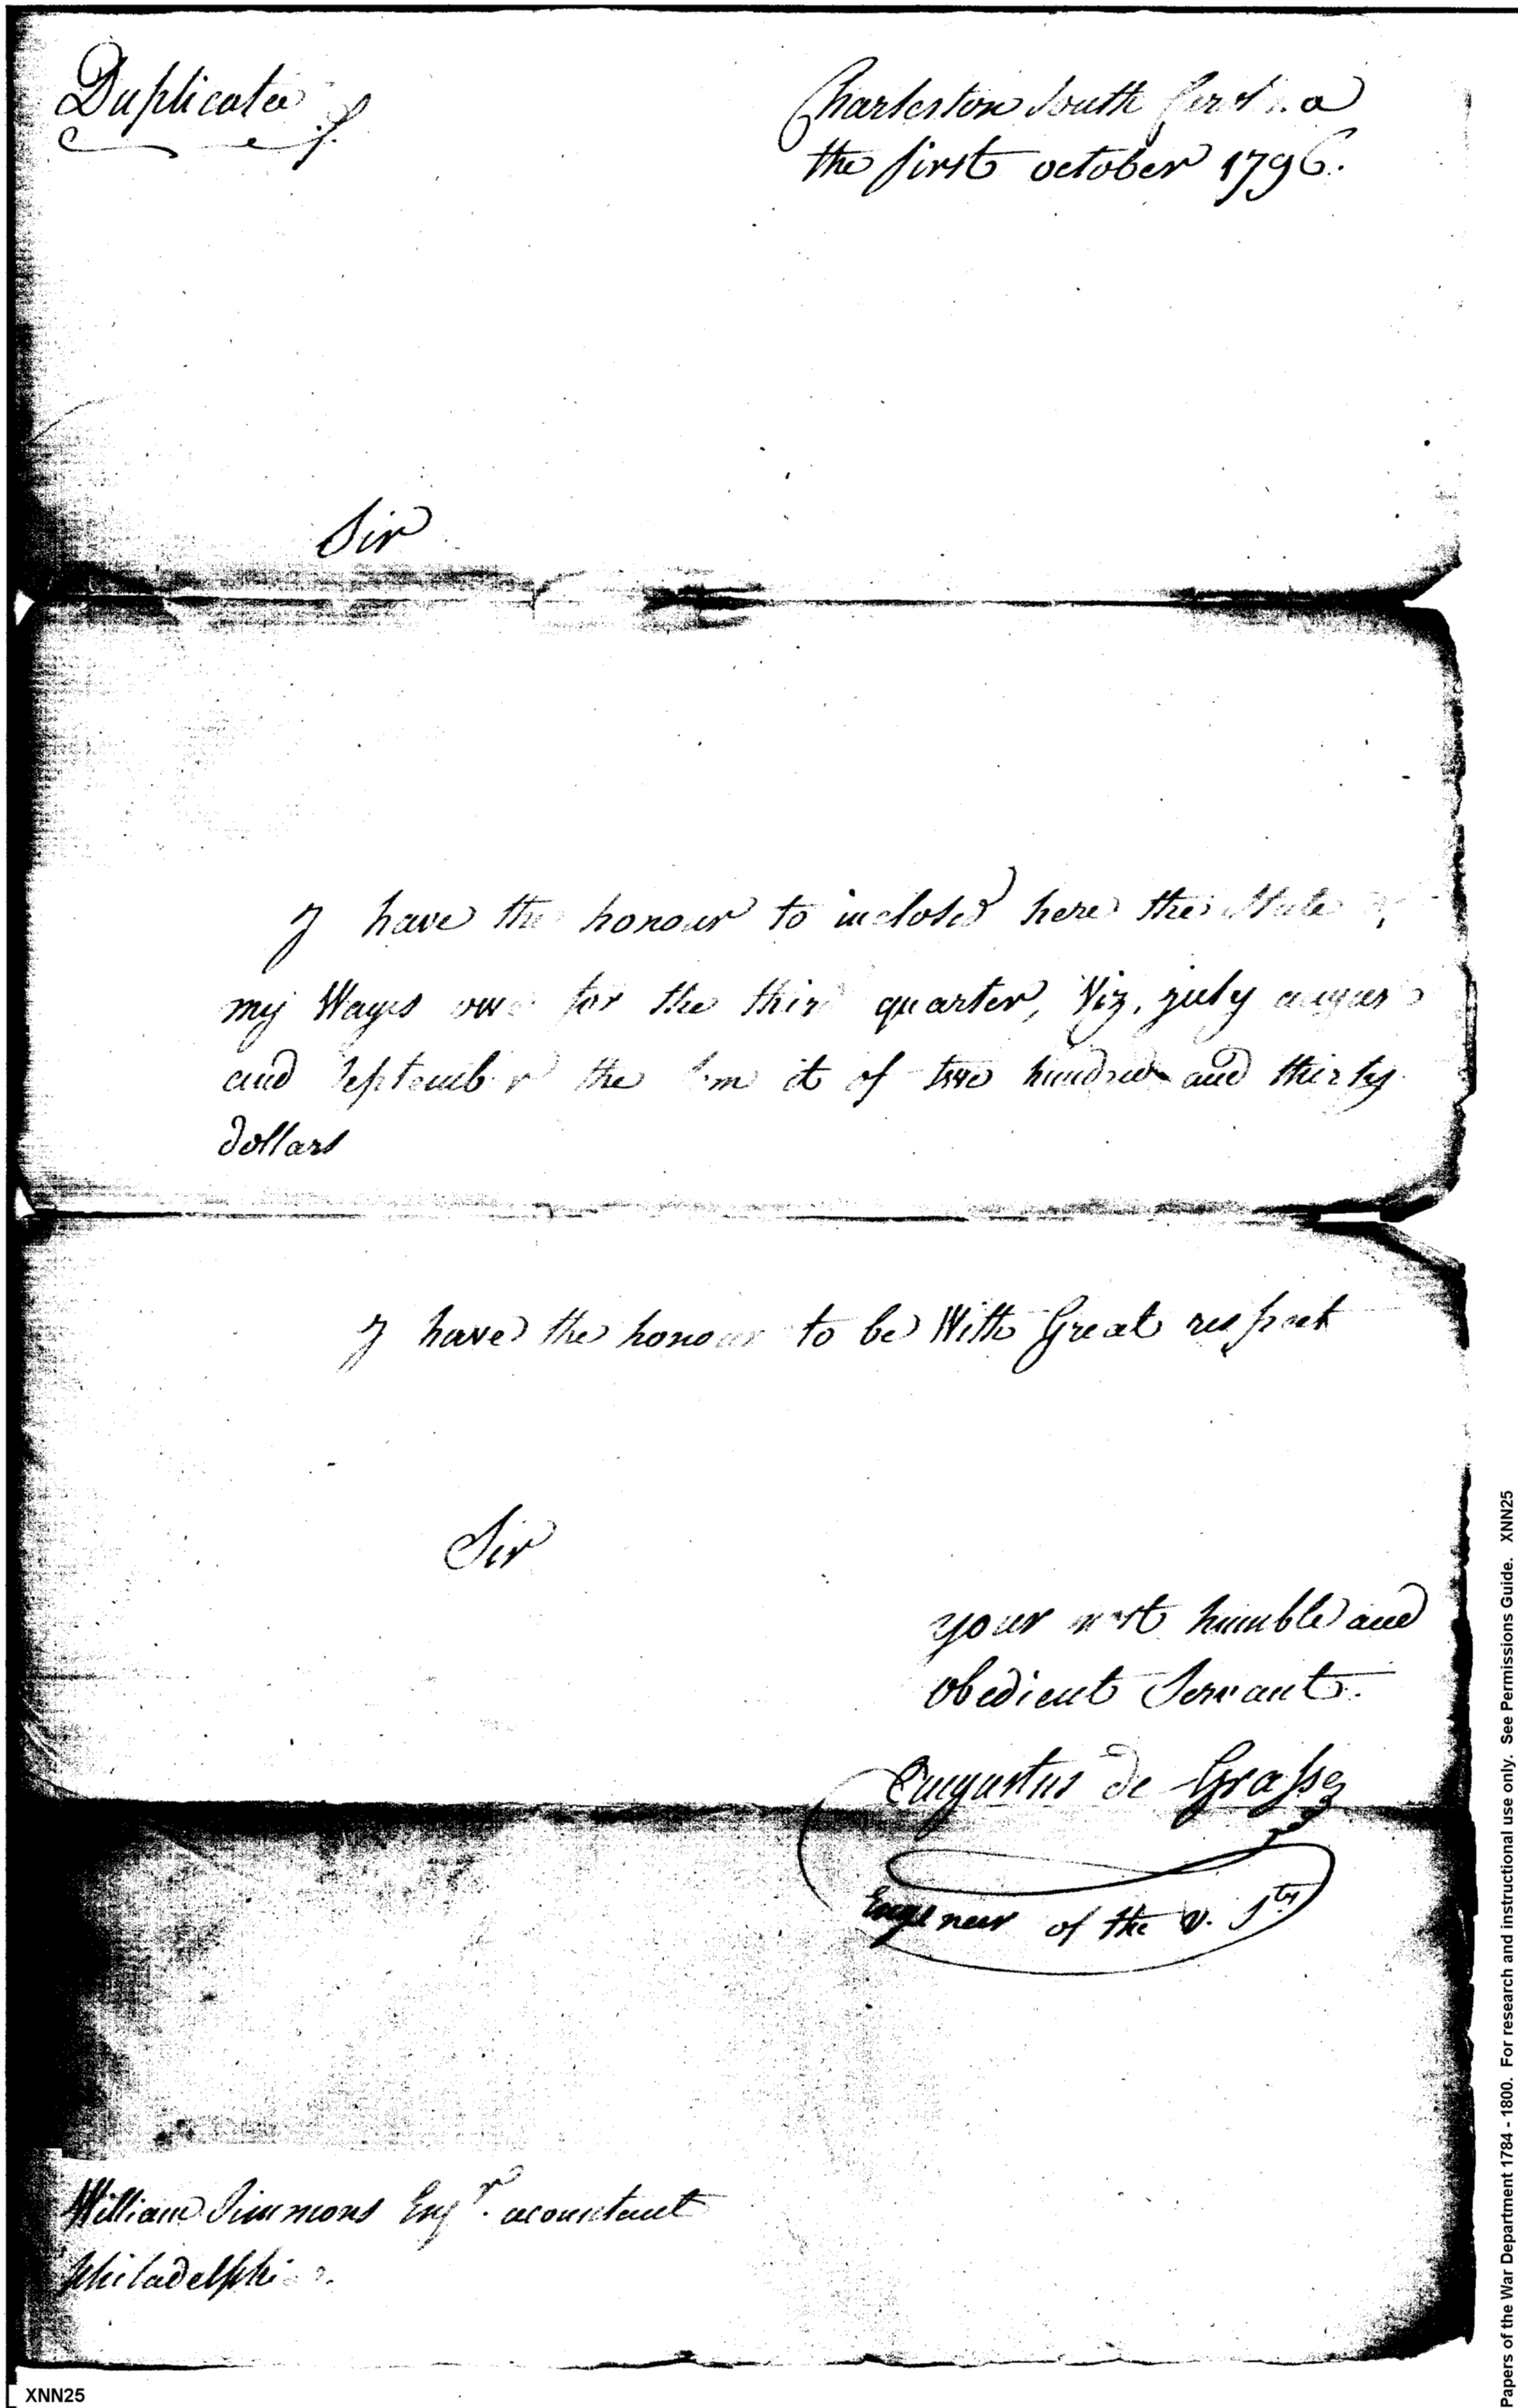 Duplicata
Charleston South Carolina
the first october 1796.
Sir
I have the honour to inclosed here the State of
my Wages owe for the third quarter, Viz, july august
and September the it of two hundred and thirty
dollars
I have the honour to be With Great respect
Sir
your most humble and
obedient Servant.
augustus de Grasse
Engeneer of the U. Sts
William Simmons Esqr. acountant
philadelphia.
Papers of the War Department 1784 - 1800. For research and instructional use only. See Permissions Guide. XNN25
XNN25